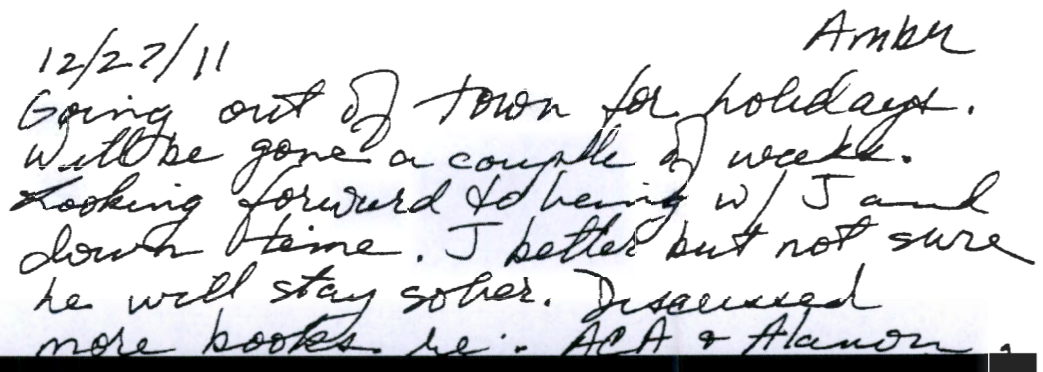 Amber
12/27/11
Going out of town for holidays.
Will be gone a couple of weeks.
Looking forward to being w/ J and
down time. J better but not sure
he will stay sober. Discussed
more books re: ACA & Alanon.